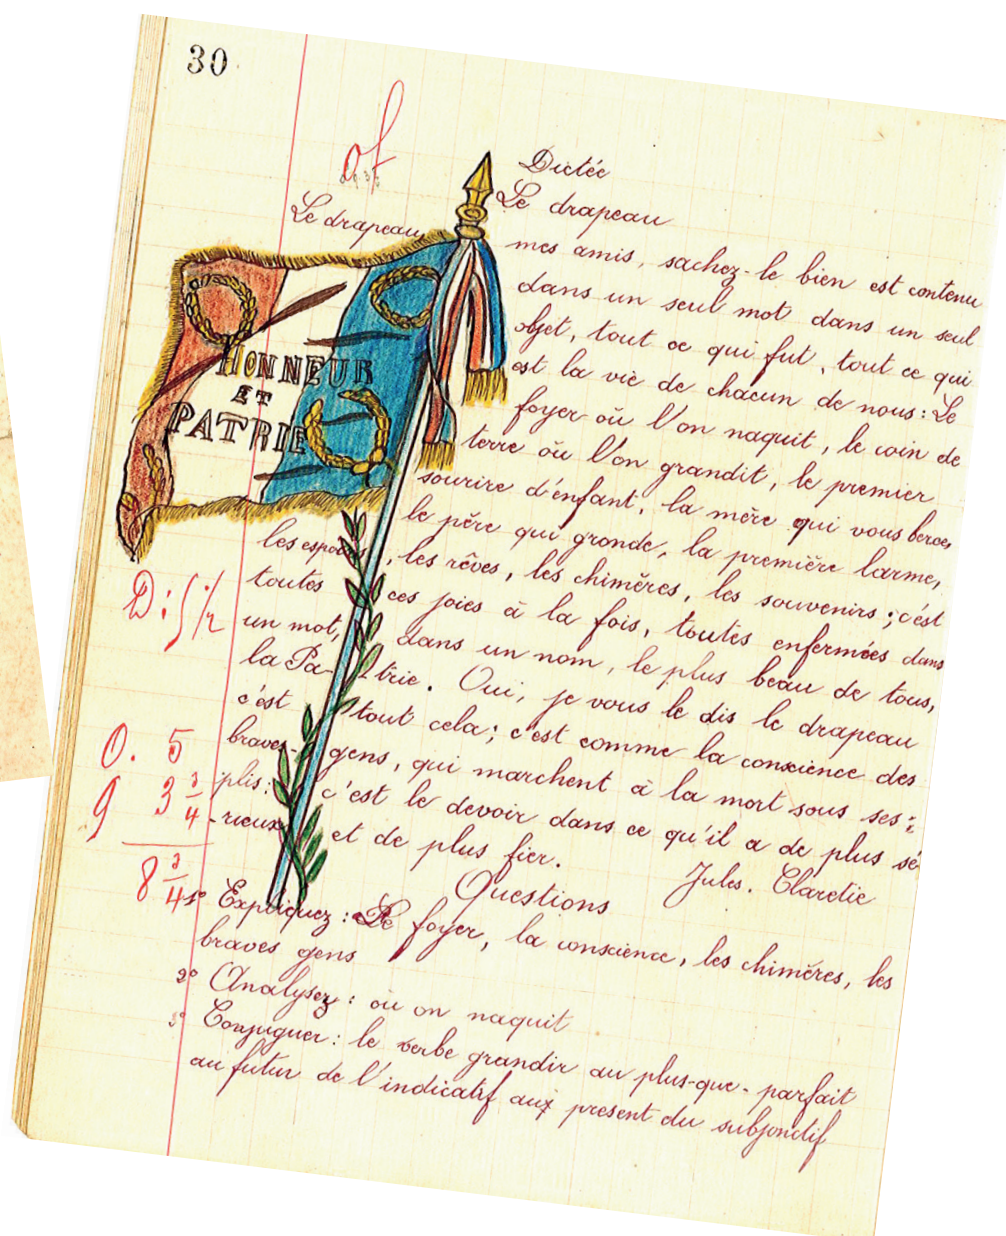 30
Dictée
Le drapeau
Le drapeau
mes amis, sachez-le bien est contenu
dans un seul mot dans un seul
objet, tout ce qui fut, tout ce qui
est la vie de chacun de nous: Le
foyer où l'on naquit, le coin de
terre où l'on grandit, le premier
sourire d'enfant, la mère qui vous berce,
le père qui gronde, la première larme,
les espoirs, les rêves, les chimères, les souvenirs; c'est
toutes ces joies à la fois, toutes enfermées dans
un mot, dans un nom, le plus beau de tous,
la Pa- trie. Oui, je vous le dis le drapeau
c'est tout cela; c'est comme la conscience des
braves- gens, qui marchent à la mort sous ses:
plis: c'est le devoir dans ce qu'il a de plus sé-
-rieux et de plus fier.
Jules. Claretie
HONNEUR
ET
PATRIE
D:
O. 5
9 3 3/4
8 3/4
Questions
1° Expliquez: Le foyer, la conscience, les chimères, les
braves gens
2° Analysez: où on naquit
3° Conjuguer: le verbe grandir au plus-que-parfait
au futur de l'indicatif aux present du subjonctif